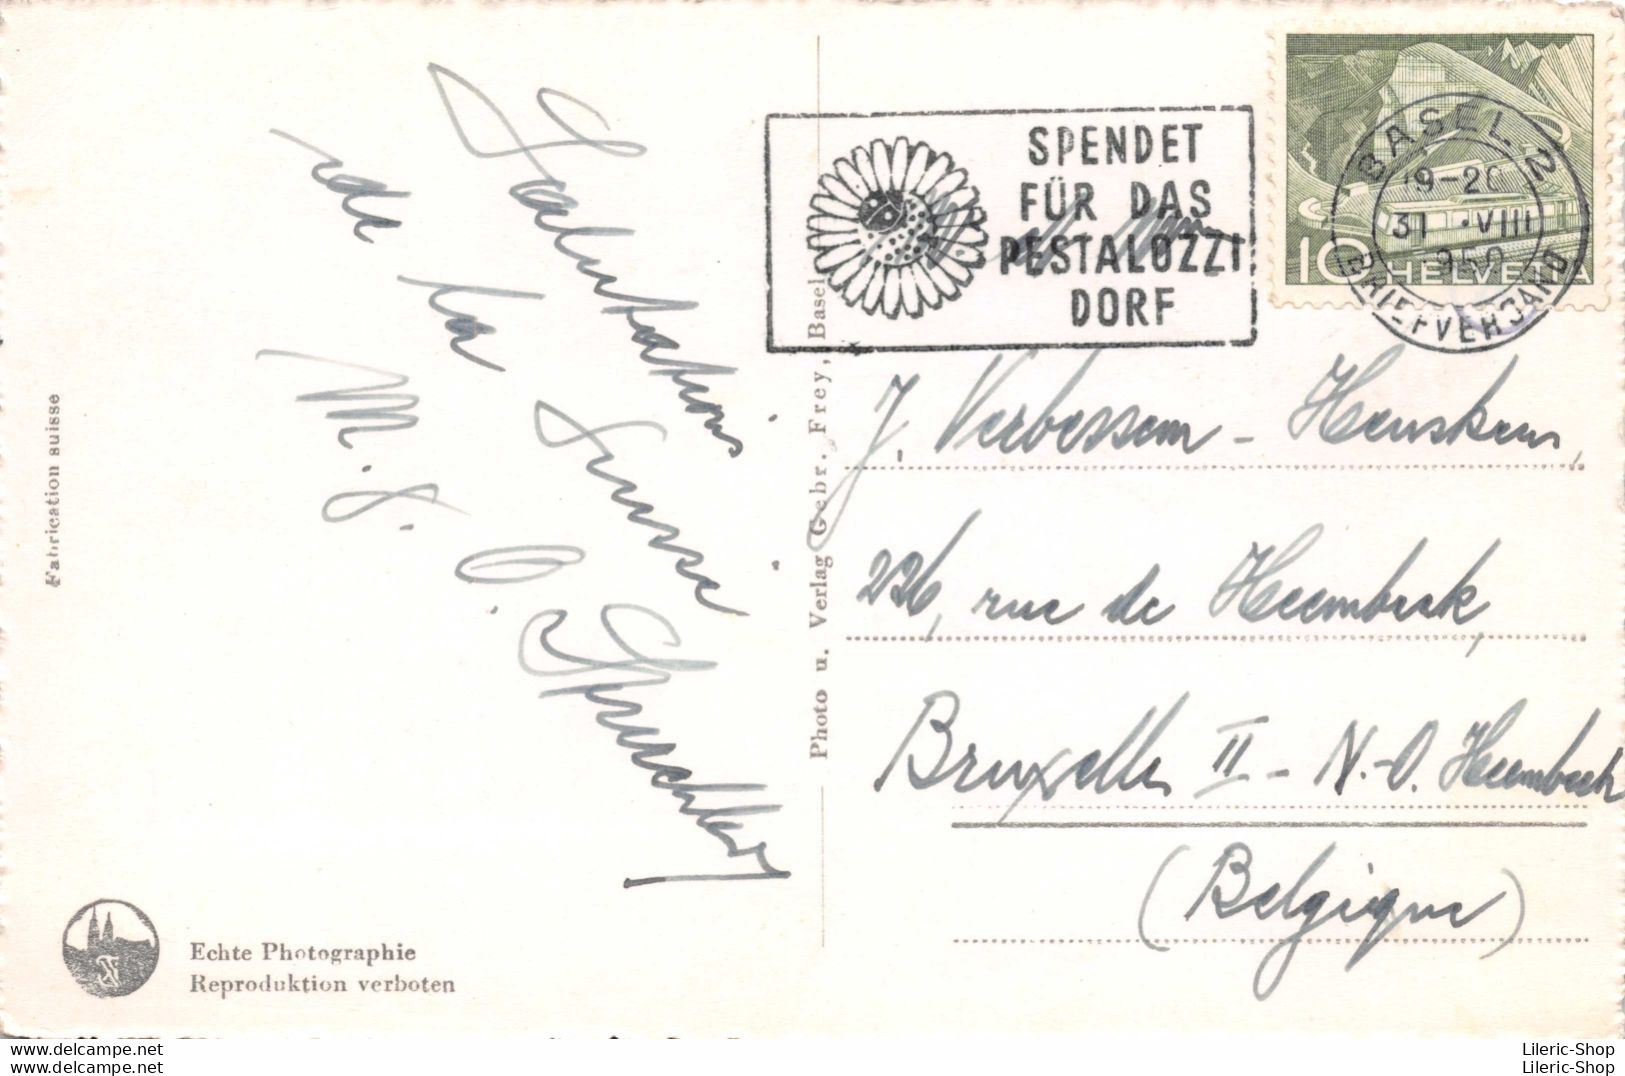 Salutations
de la Suisse
M. J.
Fabrication suisse
Echte Photographie
Reproduktion verboten
Photo u. Verlag Gebr. Frey, Basel
SPENDET
FÜR DAS
PESTALOZZI
DORF
BASEL 2
19-20
31.VIII
950
BRIEFVERSAND
10 HELVETIA
J. Verbessem - Henskens,
226, rue de Heembeek,
Bruxelles II - N.-O. Heembeek
(Belgique)
Lileric-Shop
Lileric-Shop
Lileric-Shop
Lileric-Shop